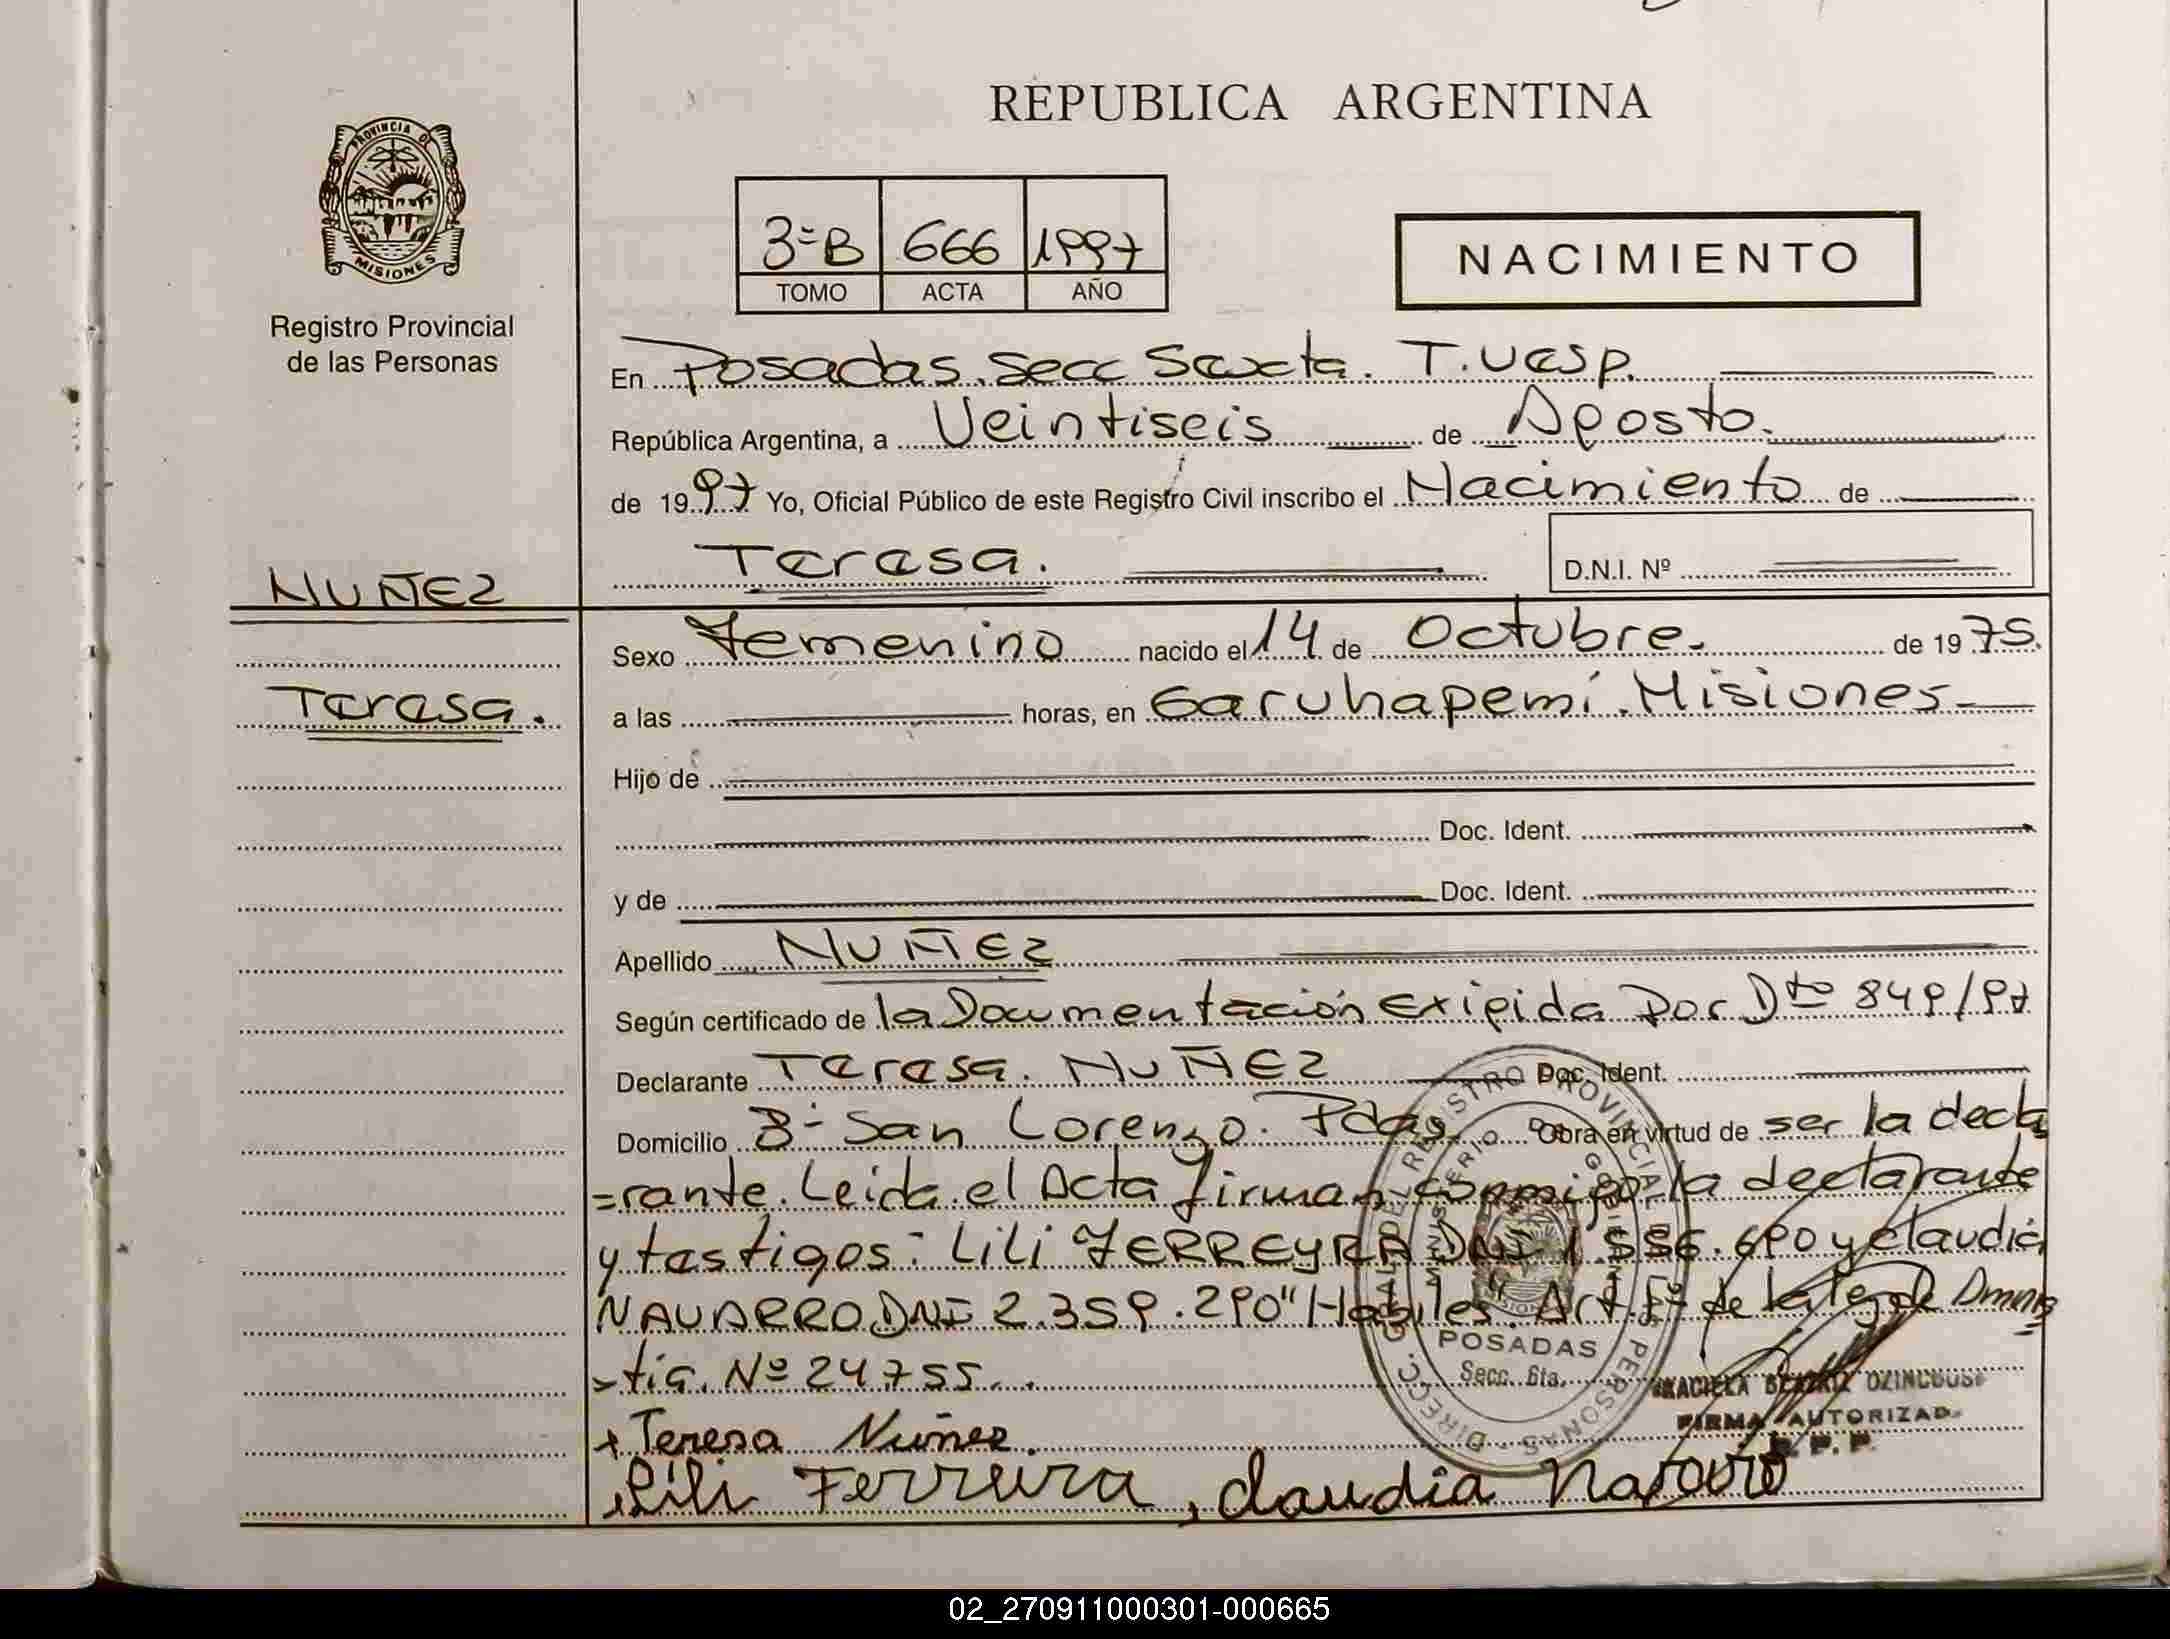 REPUBLICA ARGENTINA
PROVINCIA DE
MISIONES
Registro Provincial
de las Personas
3-B 666 1997
TOMO ACTA AÑO
NACIMIENTO
En Posadas. Secc Sexta. T. Vesp.
República Argentina, a Veintiseis de Agosto.
de 1997 Yo, Oficial Público de este Registro Civil inscribo el Nacimiento de
Teresa. D.N.I. Nº
NUÑEZ
Teresa.
Sexo Femenino nacido el 14 de Octubre. de 1975.
a las horas, en Garuhapemí. Misiones
Hijo de
Doc. Ident.
y de Doc. Ident.
Apellido NUÑEZ
Según certificado de la Documentación Exigida Por Dto 849/97
Declarante Teresa. NUÑEZ Doc. Ident.
Domicilio Bº San Lorenzo. Pdas. Obra en virtud de ser la decla
=rante. Leida el Acta firman conmigo la declarante
y testigos: Lili FERREYRA DNI 1.556.690 y claudia
NAVARRO DNI 2.359.290" Habiles". Art. de la Ley de Amnis
-tia. Nº 24755.
+ Teresa Nuñez.
Lili Ferreira, Claudia Navarro
DIRECC. GRAL DEL REGISTRO PROVINCIAL DE PERSONAS
MINISTERIO DE GOBIERNO
POSADAS
Secc. 6ta.
BEATRIZ
FIRMA AUTORIZAD
R. P. P.
02_270911000301-000665